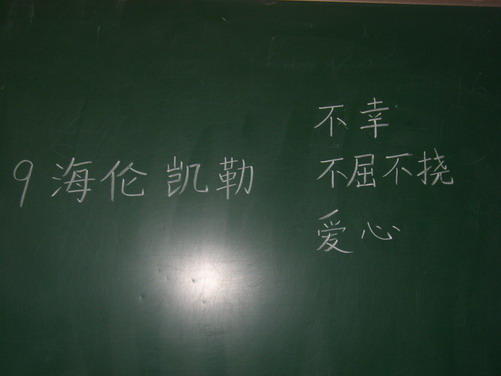 不幸
9 海伦凯勒
不屈不挠
爱心